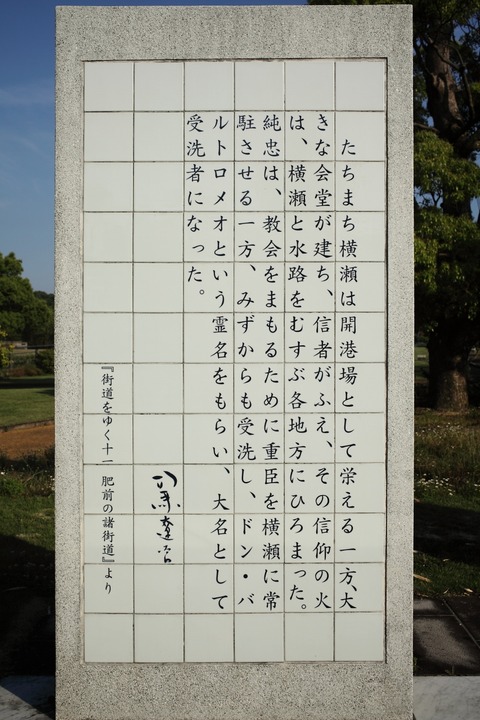 たちまち横瀬は開港場として栄える一方、大
きな会堂が建ち、信者がふえ、その信仰の火
は、横瀬と水路をむすぶ各地方にひろまった。
純忠は、教会をまもるために重臣を横瀬に常
駐させる一方、みずからも受洗し、ドン・バ
ルトロメオという霊名をもらい、大名として
受洗者になった。
司馬遼太郎
『街道をゆく十一 肥前の諸街道』より